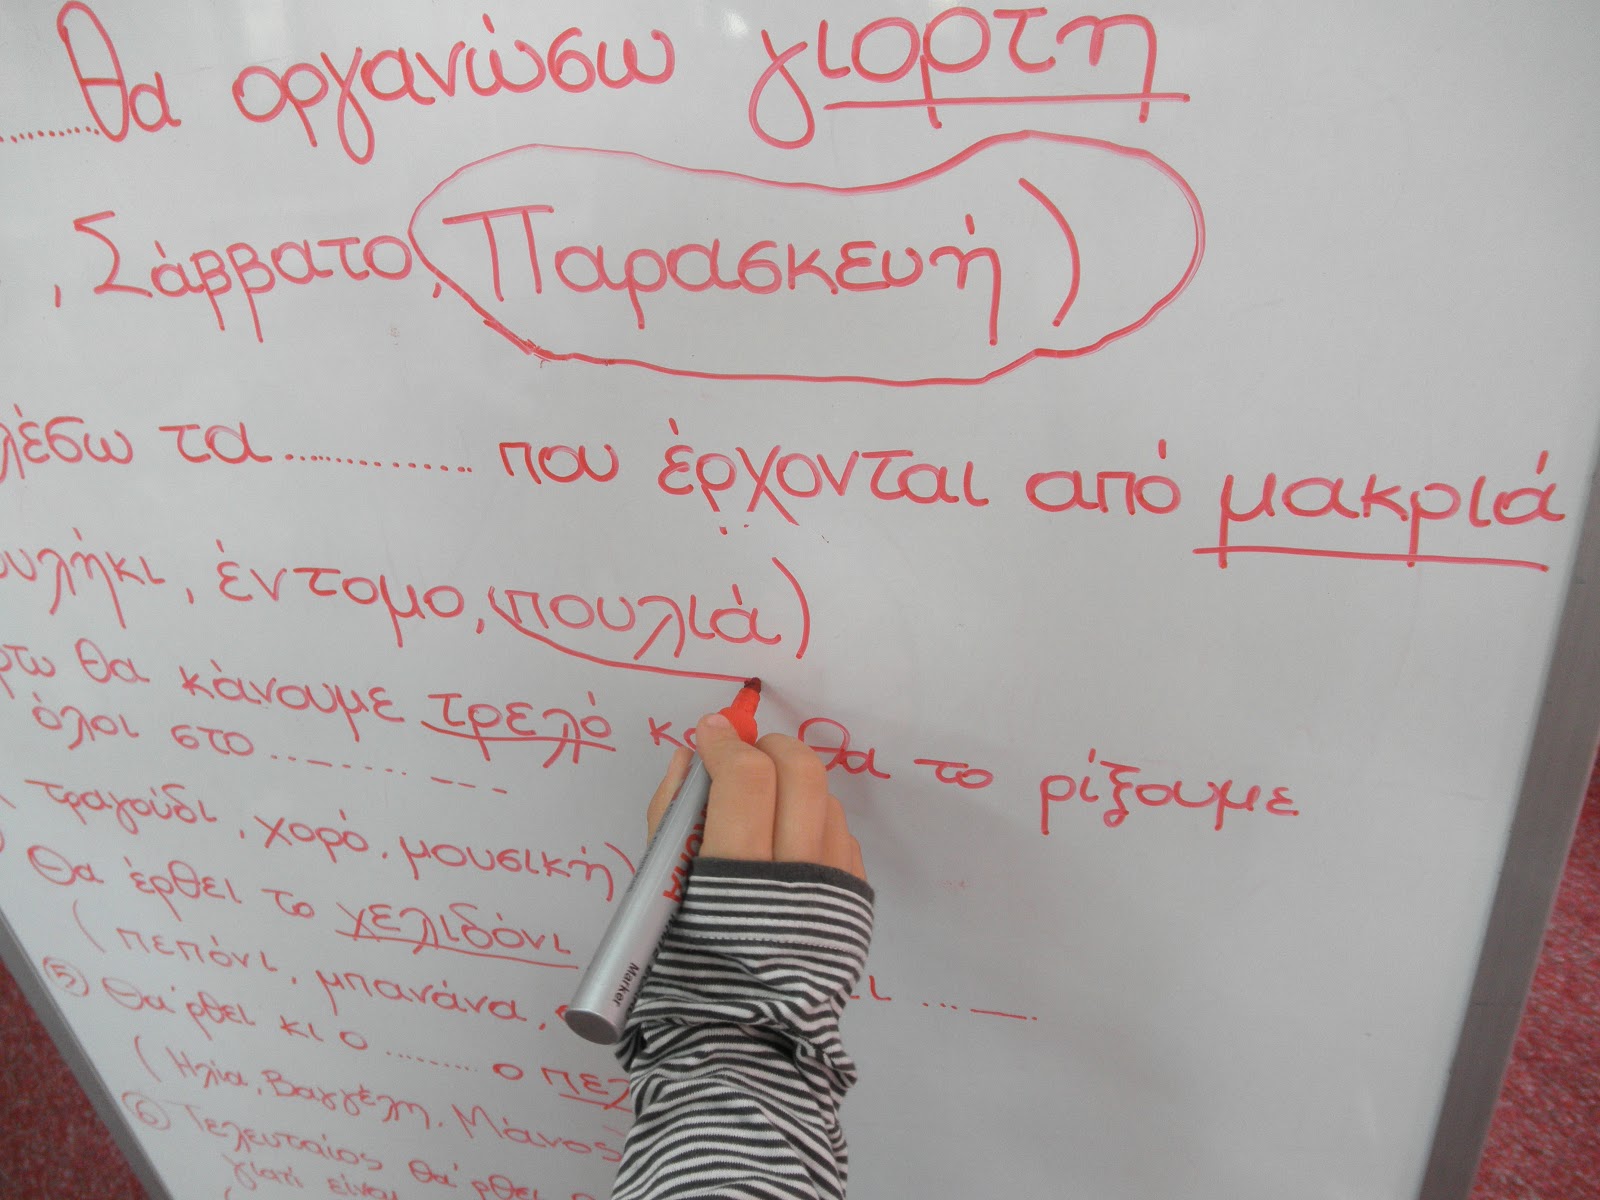 ..........θα οργανώσω γιορτη
, Σάββατο, Παρασκευή)
λέσω τα ............... που έρχονται από μακριά
ουλήκι, έντομο, (πουλιά)
θα κάνουμε τρελό θα το ρίξουμε
όλοι στο ..............
τραγούδι, χορό, μουσική)
Θα έρθει το χελιδόνι
(πεπόνι, μπανάνα,
⑤ Θα ρθει κι ο ......... ο πελ
(Ηλία, Βαγγέλη, Μάνος
⑥ Τελευταίος θα ρθει
γιατί είναι
Marker